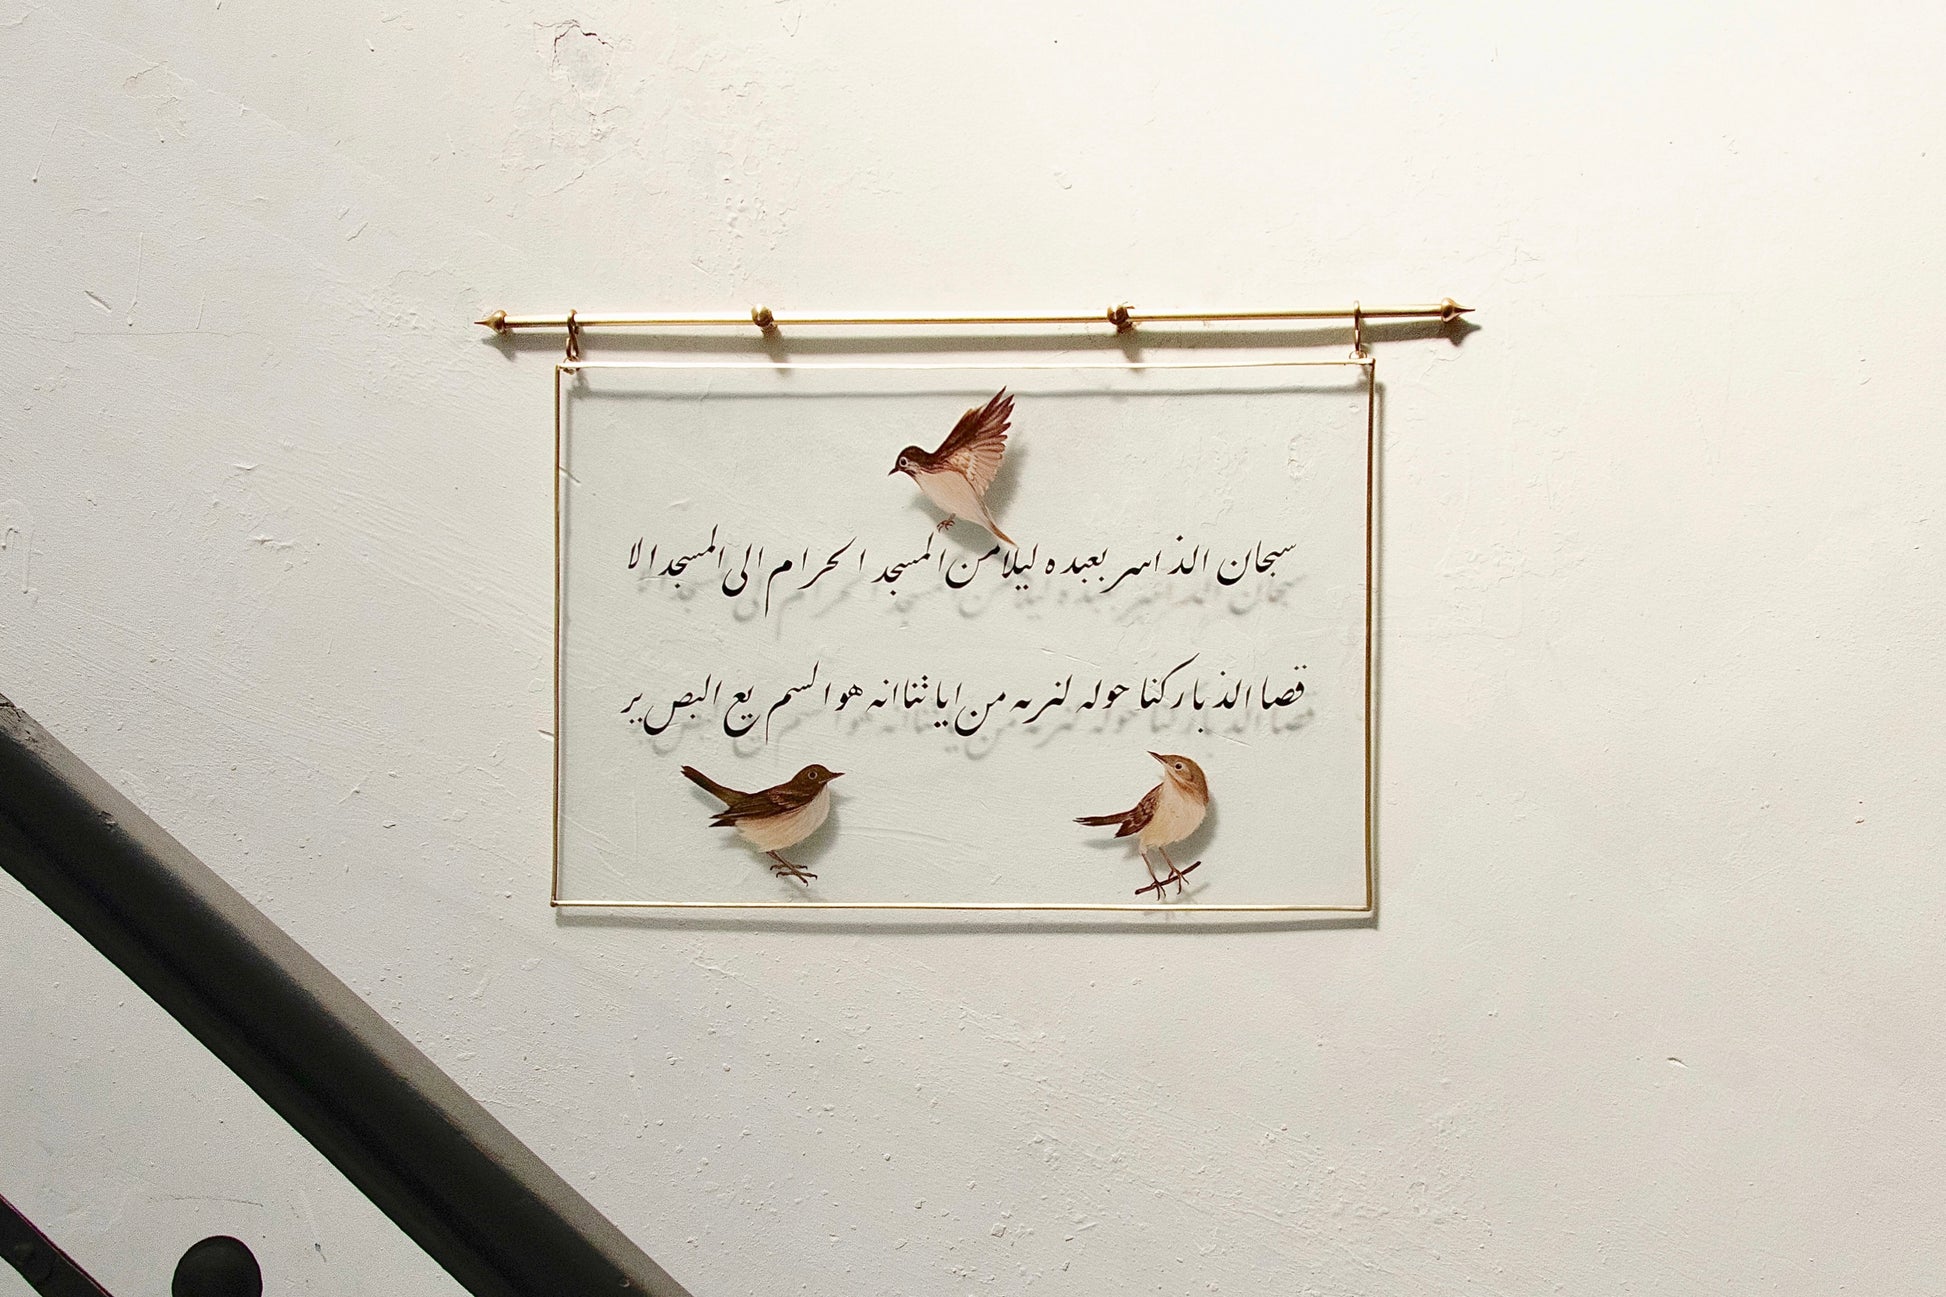 سبحان الذ اسر بعبده ليلا من المسجد الحرام الى المسجد الا
قصا الذ باركنا حوله لنريه من ايا ثنا انه هو السم يع البص ير